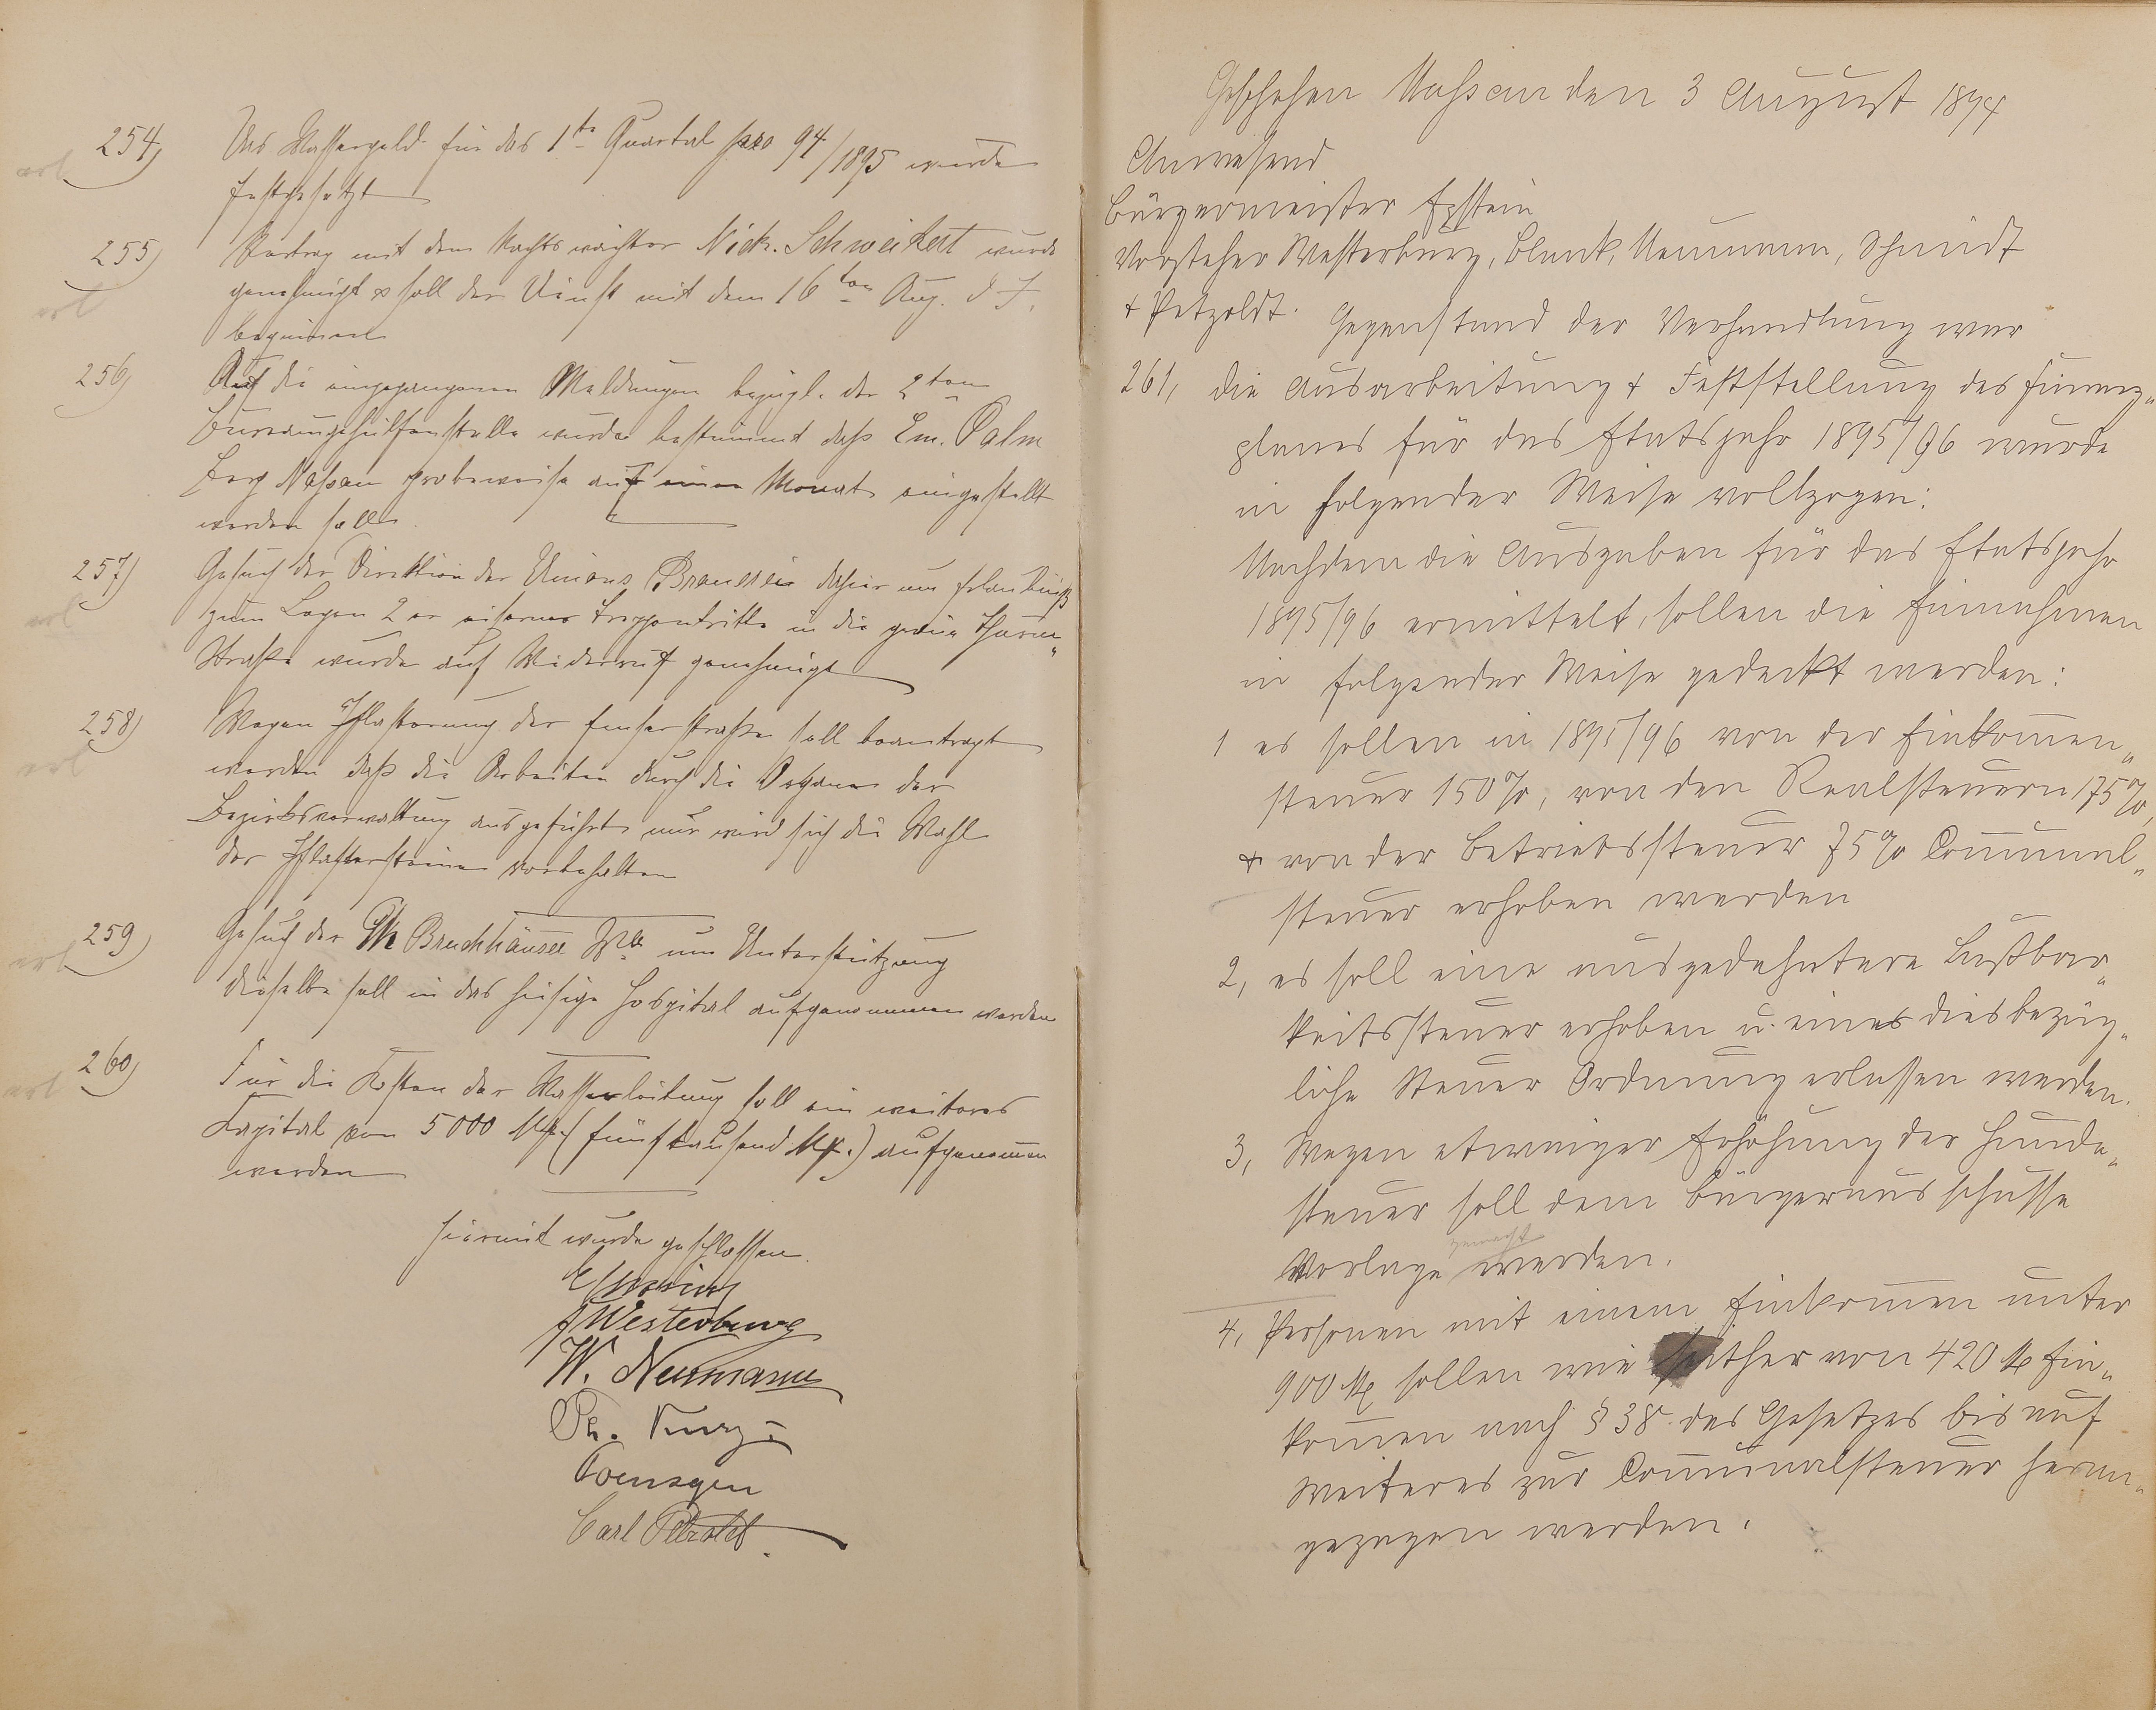 254) Das Wassergeld für das 1te Quartal pro 94/1895 wurde
festgesetzt
erl
255) Vertrag mit dem Nachtwächter Nick. Schweikert wurde
genehmigt & soll der Dienst mit dem 16ten Aug. d J.
beginnen
erl
256) Auf die eingegangenen Meldungen bezügl. der 2ten
Bureaugehülfenstelle wurde bestimmt daß Em. Palm
Berg Nassau probeweise auf einen Monat eingestellt
werden soll.
257) Gesuch der Direktion der Unions Brauerei dahier um Erlaubniß
zum Legen 2 er eiserner Treppentritte in die
Straße wurde auf Widerruf genehmigt
erl
258) Wegen Pflasterung der Emserstraße soll beantragt
werden daß die Arbeiten durch die Organe der
Bezirksverwaltung ausgeführt nur wird sich die Wahl
der Pflastersteine vorbehalten
erl
259) Gesuch der Ph Bruchhäuser Wwe um Unterstützung
dieselbe soll in das hiesige Hospital aufgenommen werden
erl
260) Für die Kosten der Wasserleitung soll ein weiteres
Kapital von 5000 Mk. (fünftausend Mk.) aufgenom̅en
werden
erl
hiermit wurde geschlossen.
Epstein
Westerburg
W. Neumann
Ph. Kurz
Carl Petzoldt
Geschehen Nassau den 3 August 1894
Anwesend
Bürgermeister Epstein
Vorsteher Westerburg, Blank, Neumann, Schmidt
+ Petzoldt. Gegenstand der Verhandlung war
261, die Ausarbeitung + Feststellung des Finanz„
planes für das Etatsjahr 1895/96 wurde
in folgender Weise vollzogen:
Nachdem die Ausgaben für das Etatsjahr
1895/96 ermittelt, sollen die Einnahmen
in folgender Weise gedeckt werden:
1 es sollen in 1895/96 von der Einkom̅en„
steuer 150%, von den Realsteuern 175%,
+ von der Betriebssteuer 75% Com̅unal„
steuer erhoben werden
2, es soll eine ausgedehntere Lustbar„
keitssteuer erhoben u. eine diesbezüg„
liche Steuer Ordnung erlassen werden.
3, Wegen etwaiger Erhöhung der Hunde„
steuer soll dem Bürgerausschusse
gemacht
Vorlage werden.
4, Personen mit einem Einkom̅en unter
900 M sollen wie seither von 420 M Ein„
kom̅en nach § 38 des Gesetzes bis auf
Weiteres zur Com̅unalsteuer heran„
gezogen werden.